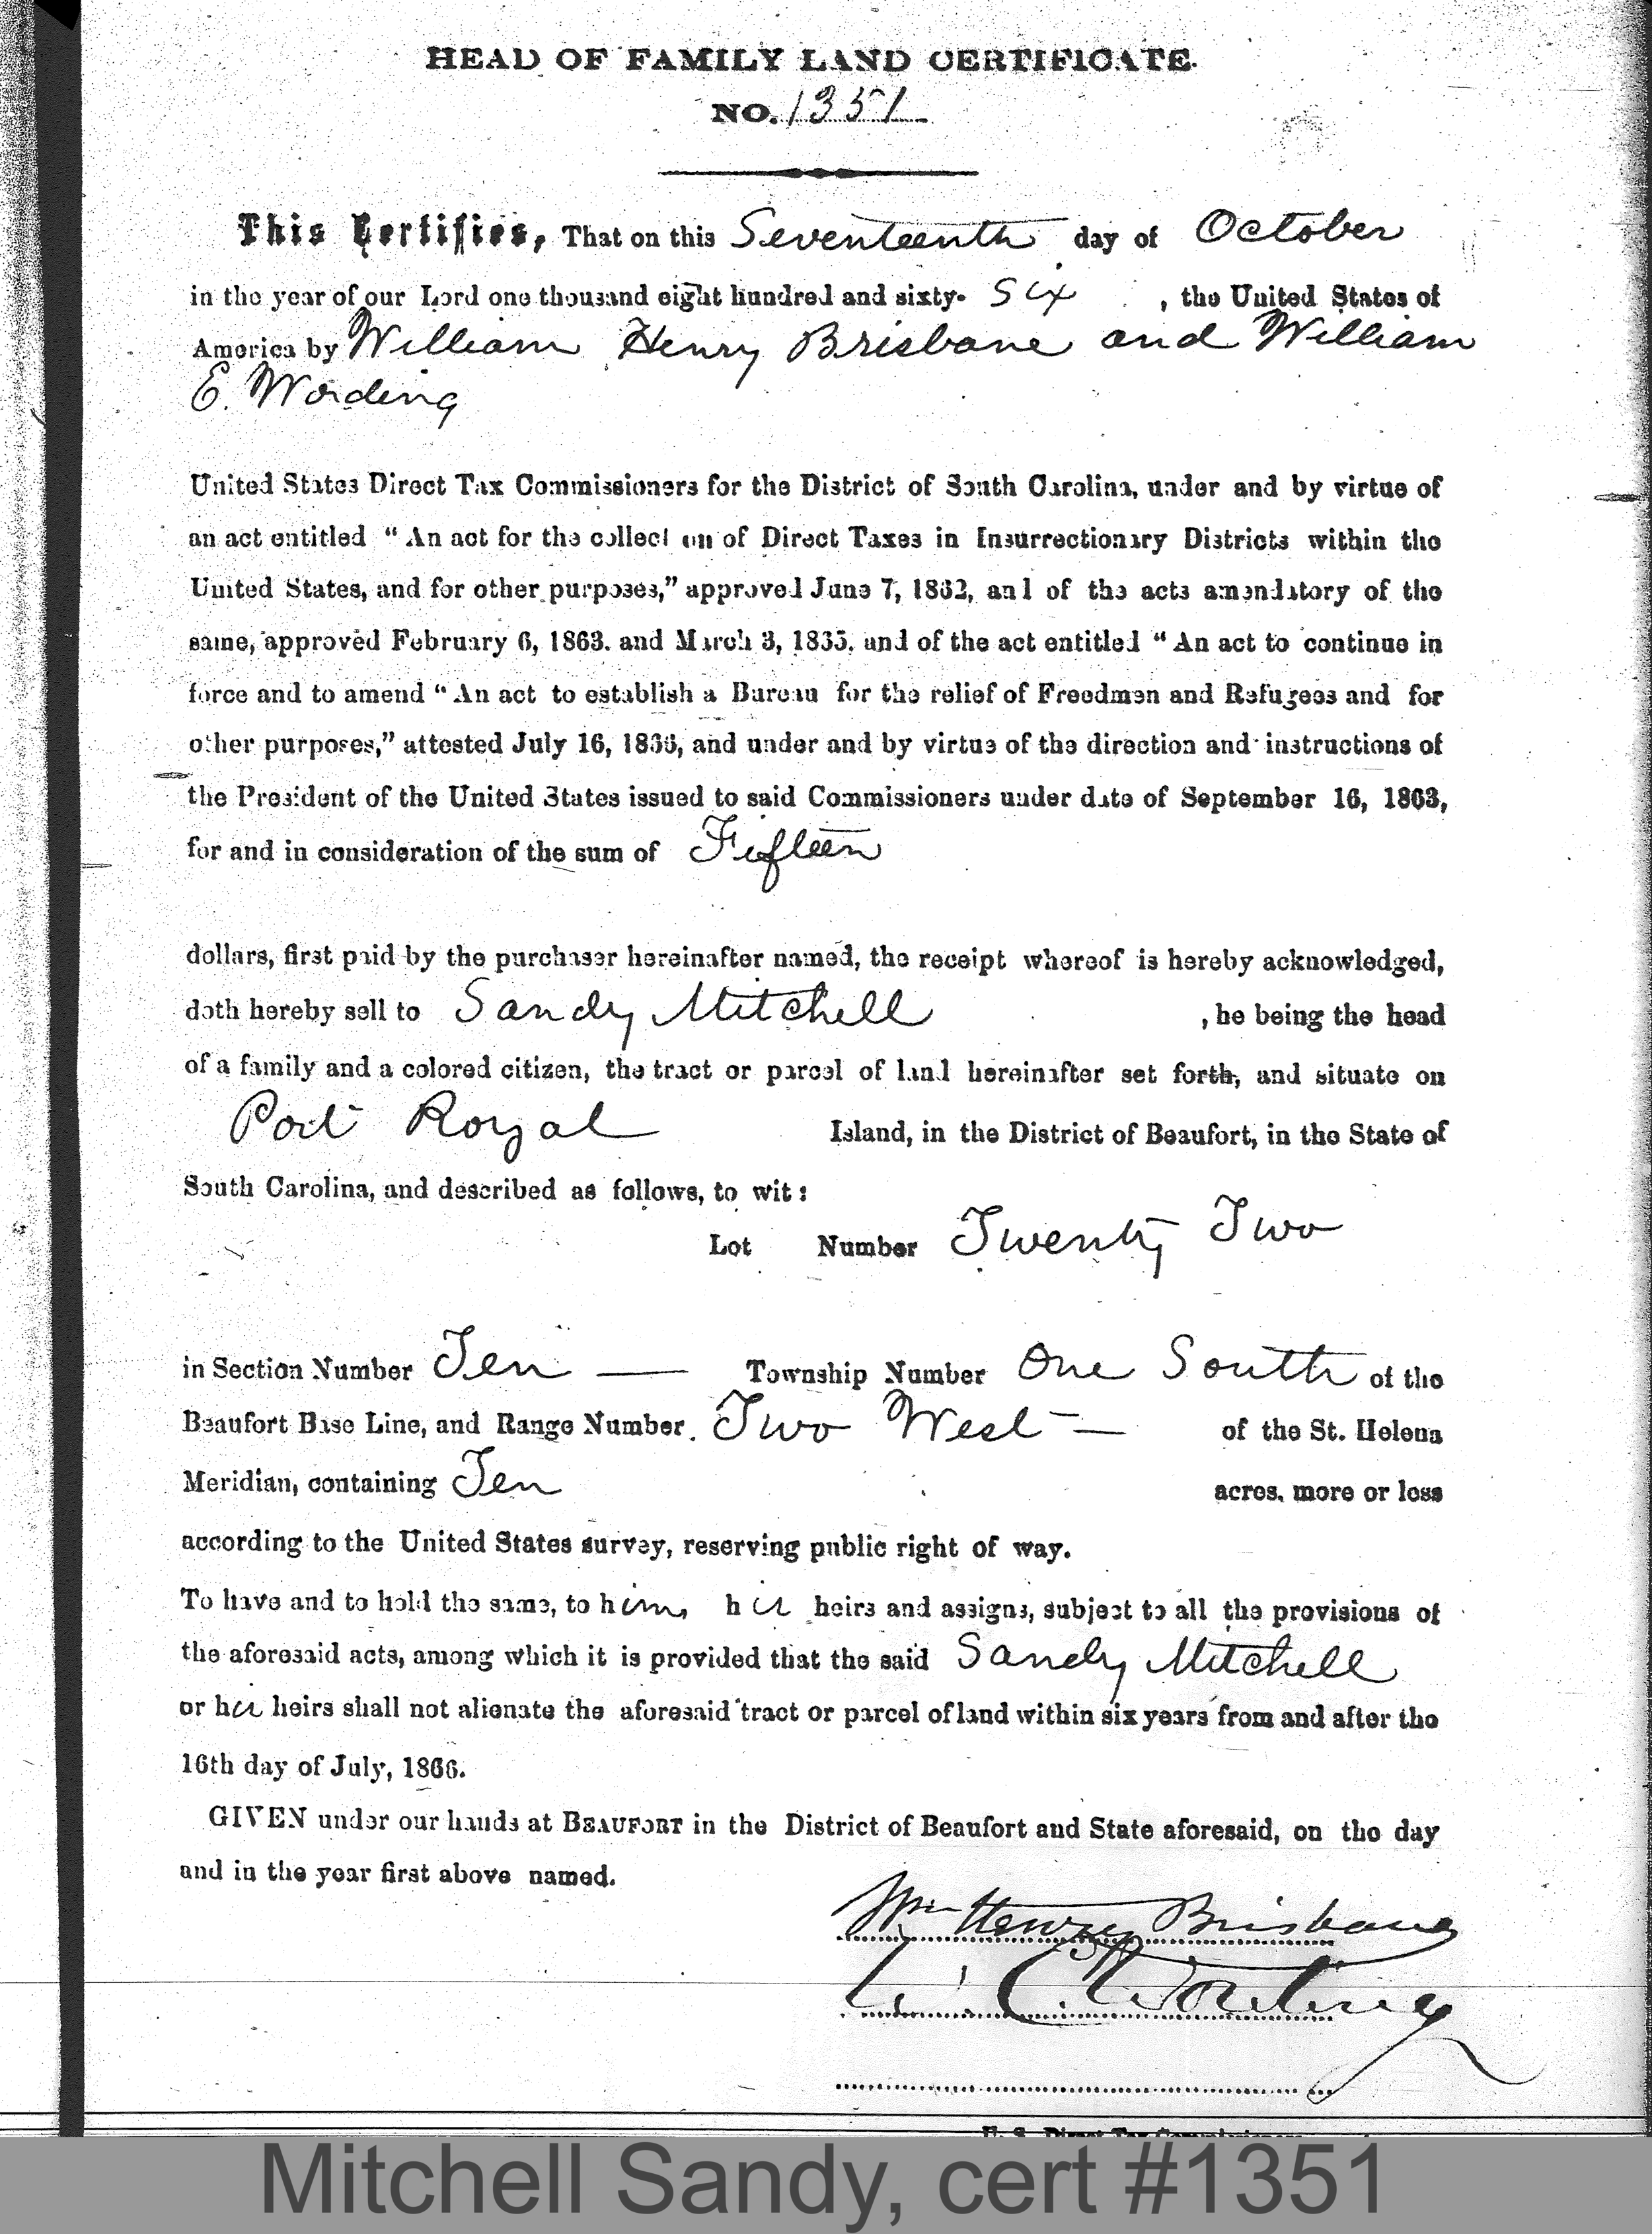 HEAD OF FAMILY LAND CERTIFICATE.
NO. 1351
This Certifies, That on this Seventeenth day of October
in the year of our Lord one thousand eight hundred and sixty- six , the United States of
America by William Henry Brisbane and William
E. Wording
United States Direct Tax Commissioners for the District of South Carolina, under and by virtue of
an act entitled “ An act for the collection of Direct Taxes in Insurrectionary Districts within the
United States, and for other purposes,” approved June 7, 1862, and of the acts amendatory of the
same, approved February 6, 1863. and March 3, 1865. and of the act entitled “ An act to continue in
force and to amend “ An act to establish a Bureau for the relief of Freedmen and Refugees and for
other purposes,” attested July 16, 1866, and under and by virtue of the direction and instructions of
the President of the United States issued to said Commissioners under date of September 16, 1863,
for and in consideration of the sum of Fifteen
dollars, first paid by the purchaser hereinafter named, the receipt whereof is hereby acknowledged,
doth hereby sell to Sandy Mitchell , he being the head
of a family and a colored citizen, the tract or parcel of land hereinafter set forth, and situate on
Port Royal Island, in the District of Beaufort, in the State of
South Carolina, and described as follows, to wit:
Lot Number Twenty Two
in Section Number Ten — Township Number One South of the
Beaufort Base Line, and Range Number. Two West — of the St. Helena
Meridian, containing Ten acres, more or less
according to the United States survey, reserving public right of way.
To have and to hold the same, to him, his heirs and assigns, subject to all the provisions of
the aforesaid acts, among which it is provided that the said Sandy Mitchell
or his heirs shall not alienate the aforesaid tract or parcel of land within six years from and after the
16th day of July, 1866.
GIVEN under our hands at BEAUFORT in the District of Beaufort and State aforesaid, on the day
and in the year first above named.
Wm Henry Brisbane
W. E. Wording
U. S. Direct Tax Commissioners
Mitchell Sandy, cert #1351